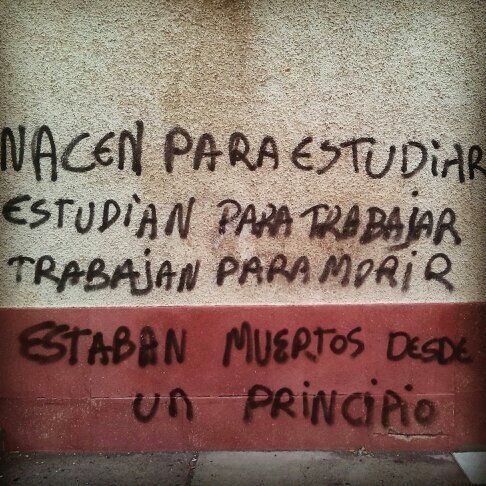 NACEN PARA ESTUDiAR
ESTUDiAN PARA TRABAJAR
TRABAJAN PARA MORiR
ESTABAN MUERTOS DESDE
UN PRiNCiPiO